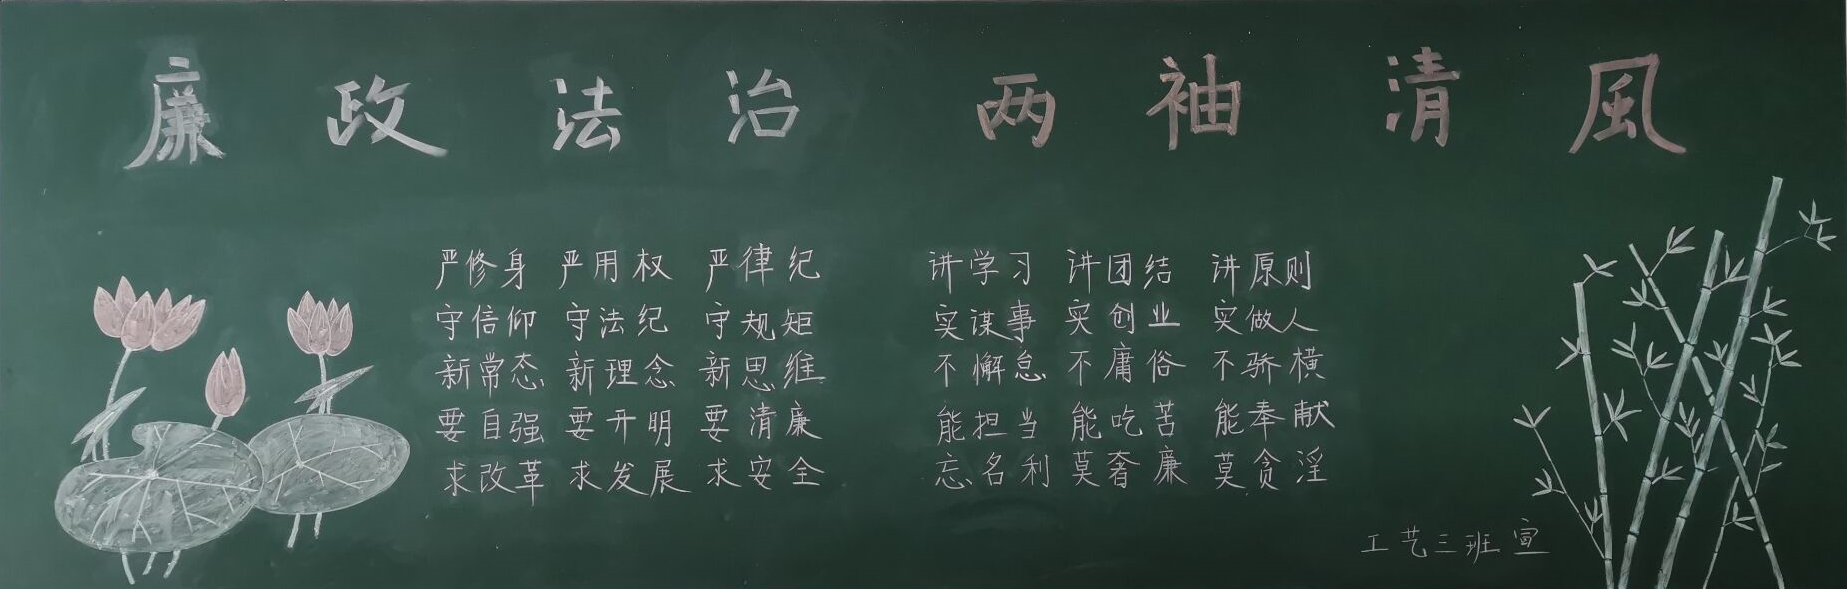 廉政法治 两袖清風
严修身 严用权 严律纪
守信仰 守法纪 守规矩
新常态 新理念 新思维
要自强 要开明 要清廉
求改革 求发展 求安全
讲学习 讲团结 讲原则
实谋事 实创业 实做人
不懈怠 不庸俗 不骄横
能担当 能吃苦 能奉献
忘名利 莫奢廉 莫贪淫
工艺三班宣